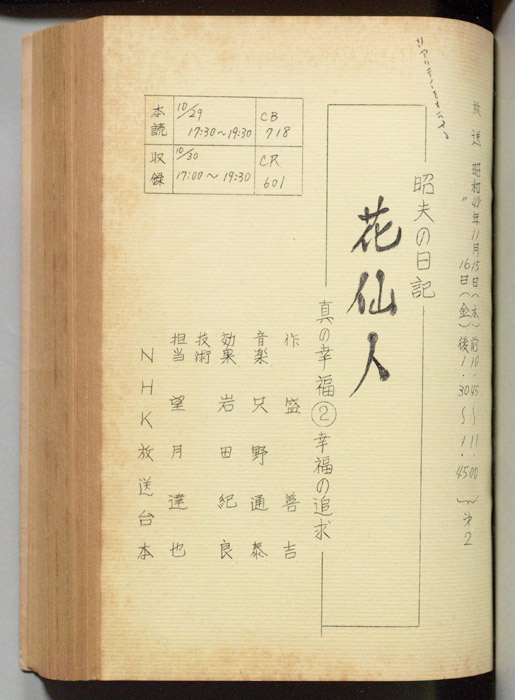 放送 昭和49年11月15日(木)前10.45～11.00
〃 16日(金)後1.30～1.45 第2
昭夫の日記
花仙人
真の幸福②幸福の追求
作 盛善吉
音楽 只野通泰
効果 岩田紀良
技術
担当 望月達也
NHK放送台本
本読 10/29 17:30～19:30 CB718
収録 10/30 17:00～19:30 CR601